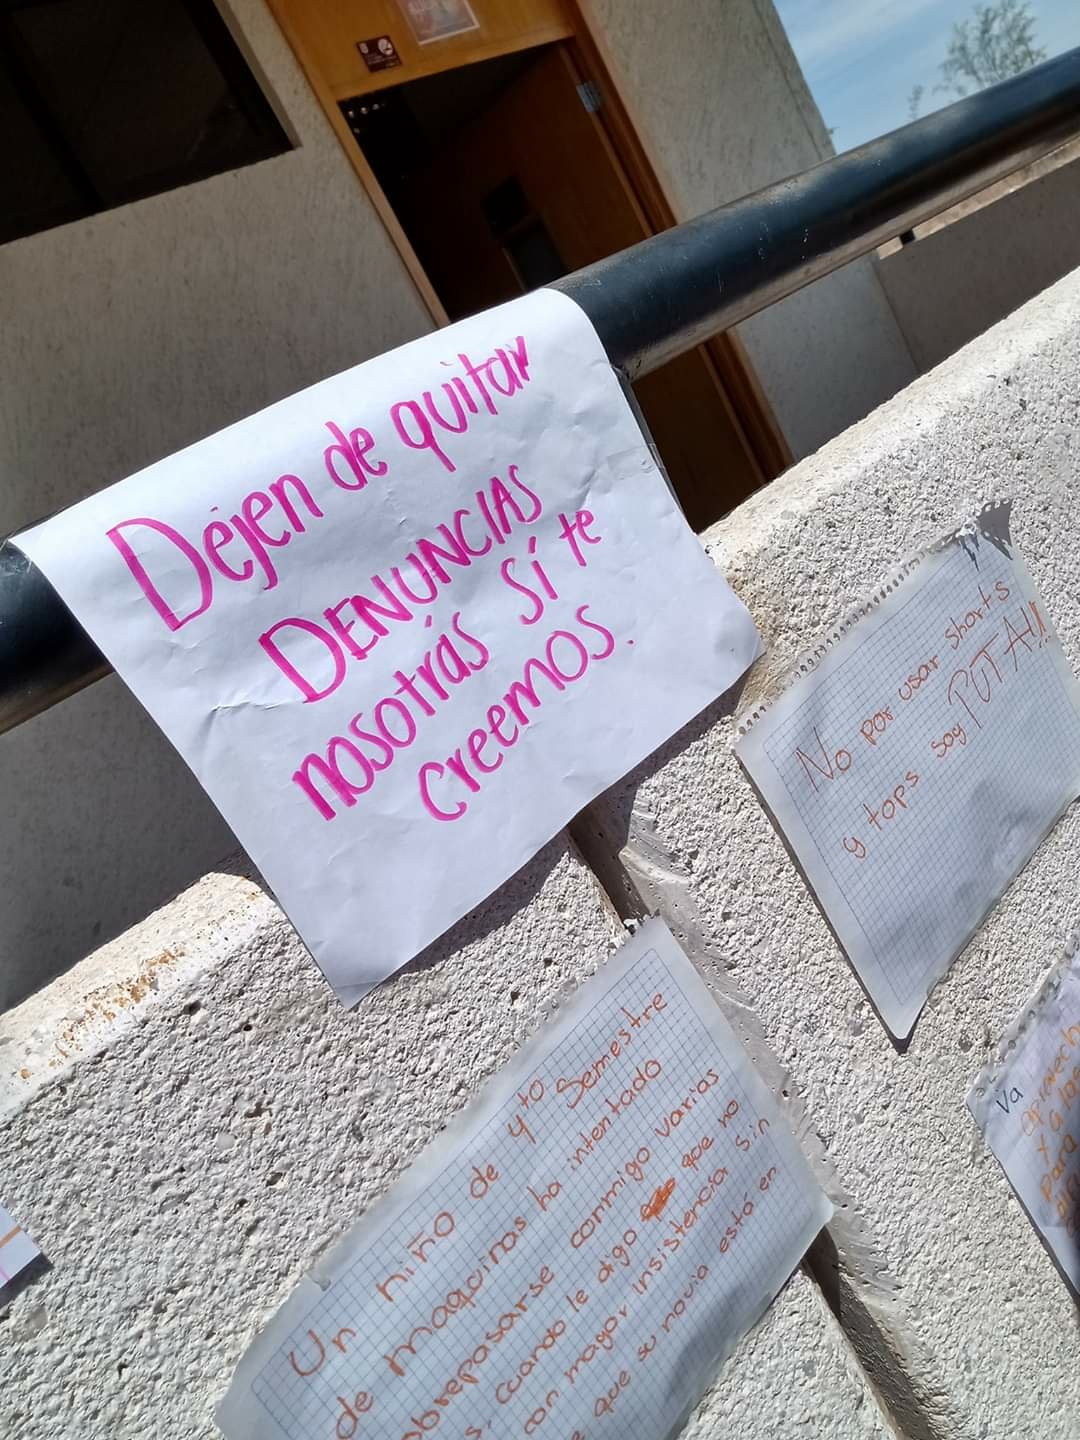 Dejen de quitar
DENUNCIAS
nosotrás sí te
creemos.
No por usar shorts
y tops soy PUTA!!!
Un niño de 4to semestre
de maquinas ha intentado
sobrepasarse conmigo varias
cuando le digo que no
con mayor insistencia sin
que su novia está en
Va
para